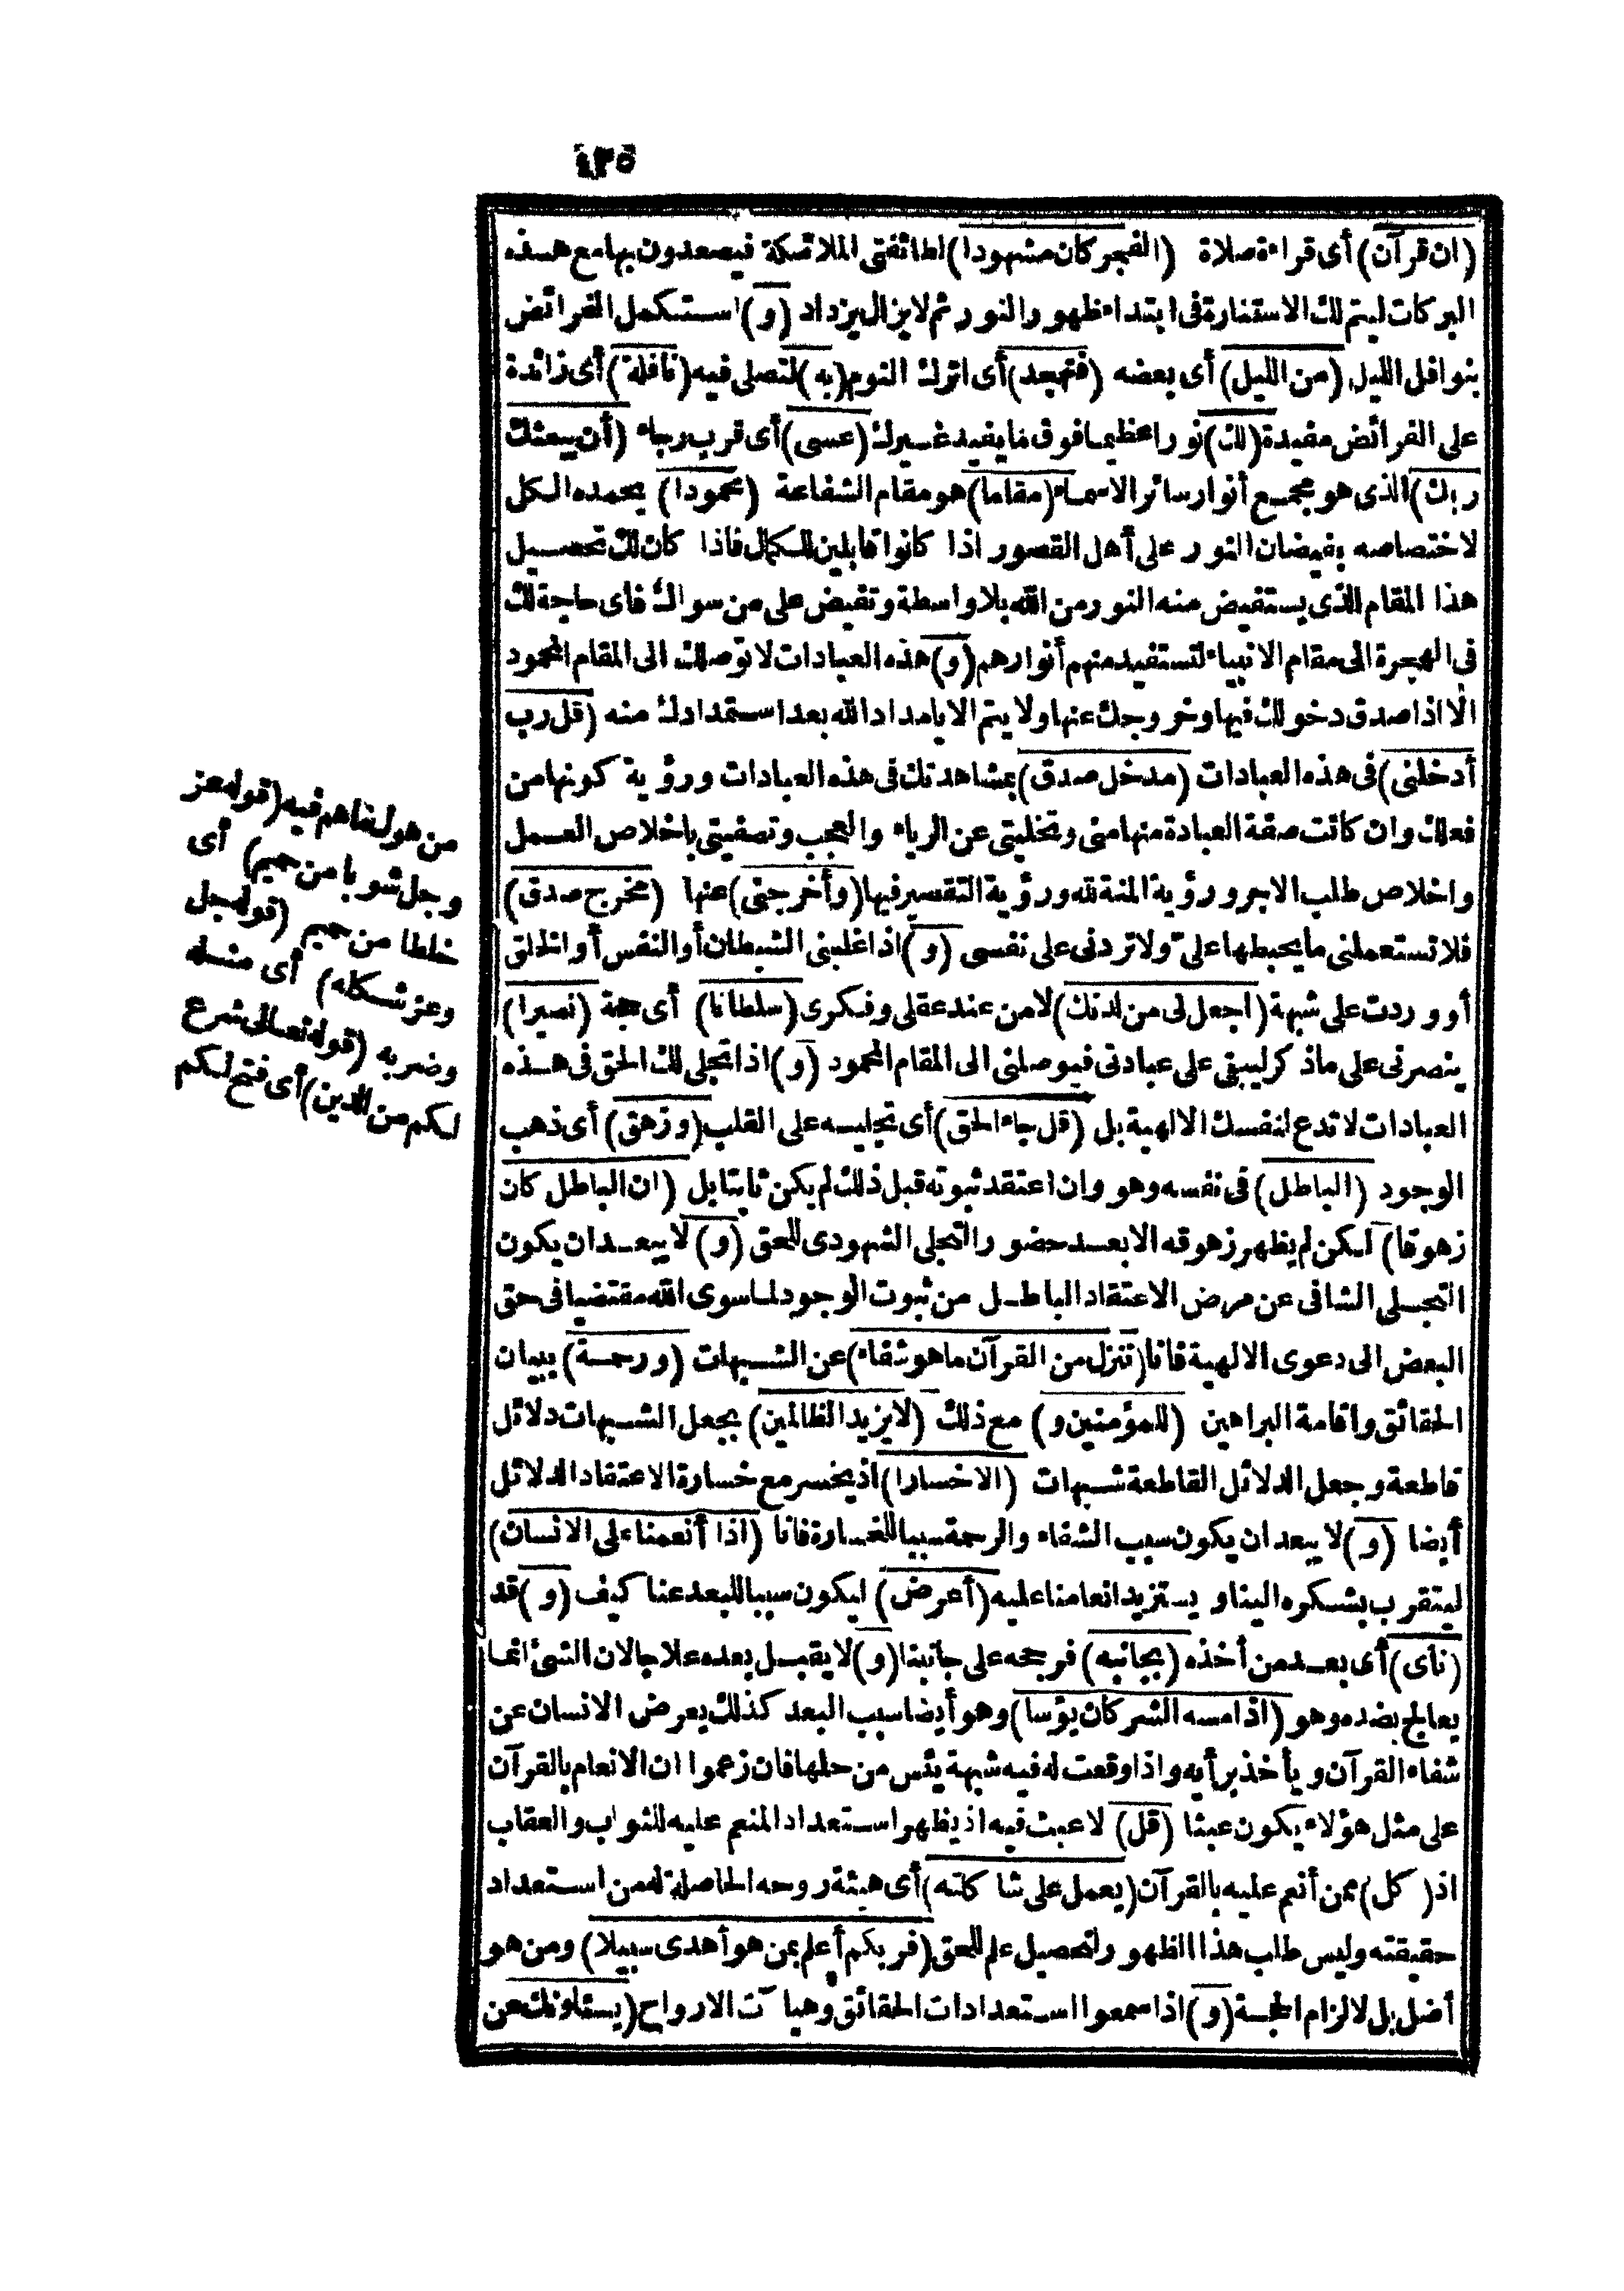 ٤٣٥
(ان قرآن) أى قراءة صلاة (الفجر كان مشهودا) لطائفتى الملائكة فيصعدون بها مع هذه
البركات ليتم لك الاستنارة فى ابتداء ظهور النور ثم لا يزال يزداد (و) استكمل الفرائض
بنوافل الليل (من الليل) أى بعضه (فتهجد) أى اترك النوم (به) لتصلى فيه (نافلة) أى زائدة
على الفرائض مفيدة (لك) نورا عظيما فوق ما يفيد غيرك (عسى) أى قرب رجاء (أن يبعثك
ربك) الذى هو مجمع أنوار سائر الاسماء (مقاما) هو مقام الشفاعة (محمودا) يحمده الكل
لاختصاصه بفيضان النور على أهل القصور اذا كانوا قابلين للكمال فاذا كان لك تحصيل
هذا المقام الذى يستفيض منه النور من الله بلا واسطة وتفيض على من سواك فأى حاجة لك
فى الهجرة الى مقام الانبياء لتستفيد منهم أنوارهم (و) هذه العبادات لا توصلك الى المقام المحمود
الا اذا صدق دخولك فيها وخروجك عنها ولا يتم الا بامداد الله بعد استمدادك منه (قل رب
أدخلنى) فى هذه العبادات (مدخل صدق) بمشاهدتك فى هذه العبادات ورؤية كونها من
فعلك وان كانت صفة العبادة منها منى وتخليتى عن الرياء والعجب وتصفيتى باخلاص العمل
واخلاص طلب الاجر ورؤية المنة لله ورؤية التقصير فيها (وأخرجنى) عنها (مخرج صدق)
فلا تستعملنى ما يحبطها على ولا تردنى على نفسى (و) اذا غلبنى الشيطان أو النفس أو الخلق
أو وردت على شبهة (اجعل لى من لدنك) لا من عند عقلى وفكرى (سلطانا) أى حجة (نصيرا)
ينصرنى على ماذكر ليبقى على عبادتى فيوصلنى الى المقام المحمود (و) اذا تجلى لك الحق فى هذه
العبادات لا تدع لنفسك الالهية بل (قل جاء الحق) أى تجليه على القلب (وزهق) أى ذهب
الوجود (الباطل) فى نفسه وهو وان اعتقد ثبوته قبل ذلك لم يكن ثابتا بل (ان الباطل كان
زهوقا) لكن لم يظهر زهوقه الا بعد حضور التجلى الشهودى للحق (و) لا يبعد ان يكون
التجلى الشافى عن مرض الاعتقاد الباطل من ثبوت الوجود لما سوى الله مقتضيا فى حق
البعض الى دعوى الالهية فانا (ننزل من القرآن ما هو شفاء) عن الشبهات (ورحمة) ببيان
الحقائق واقامة البراهين (للمؤمنين و) مع ذلك (لا يزيد الظالمين) بجعل الشبهات دلائل
قاطعة وجعل الدلائل القاطعة شبهات (الا خسارا) اذ يخسر مع خسارة الاعتقاد الدلائل
أيضا (و) لا يبعد ان يكون سبب الشفاء والرحمة سببا للخسارة فانا (اذا أنعمنا على الانسان)
ليتقرب بشكره الينا ويستزيد انعامنا عليه (أعرض) ليكون سببا للبعد عنا كيف (و) قد
(نأى) أى بعد من أخذه (بجانبه) فرجحه على جانبنا (و) لا يقبل بعده علاجا لان الشئ انما
يعالج بضده وهو (اذا مسه الشر كان يؤسا) وهو أيضا سبب البعد كذلك يعرض الانسان عن
شفاء القرآن ويأخذ برأيه واذا وقعت له فيه شبهة يئس من حلها فان زعموا ان الانعام بالقرآن
على مثل هؤلاء يكون عبثا (قل) لا عبث فيه اذ يظهر استعداد المنعم عليه للثواب والعقاب
اذ (كل) ممن أنعم عليه بالقرآن (يعمل على شاكلته) أى هيئة روحه الحاصلة له من استعداد
حقيقته وليس طلب هذا الظهور لتحصيل علم للحق (فربكم أعلم بمن هو أهدى سبيلا) ومن هو
أضل بل لالزام الحجة (و) اذا سمعوا استعدادات الحقائق وهيآت الارواح (يسئلونك عن
من هول ما هم فيه (قوله عز
وجل شوبا من حميم) أى
خلطا من حميم (قوله جل
وعز شكله) أى مثله
وضربه (قوله تعالى شرع
لكم من الدين) أى فتح لكم